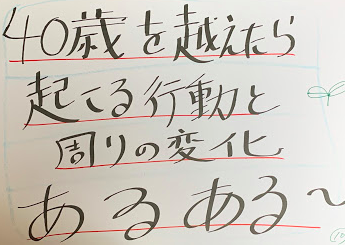 40歳を越えたら
起こる行動と
周りの変化
あるある～